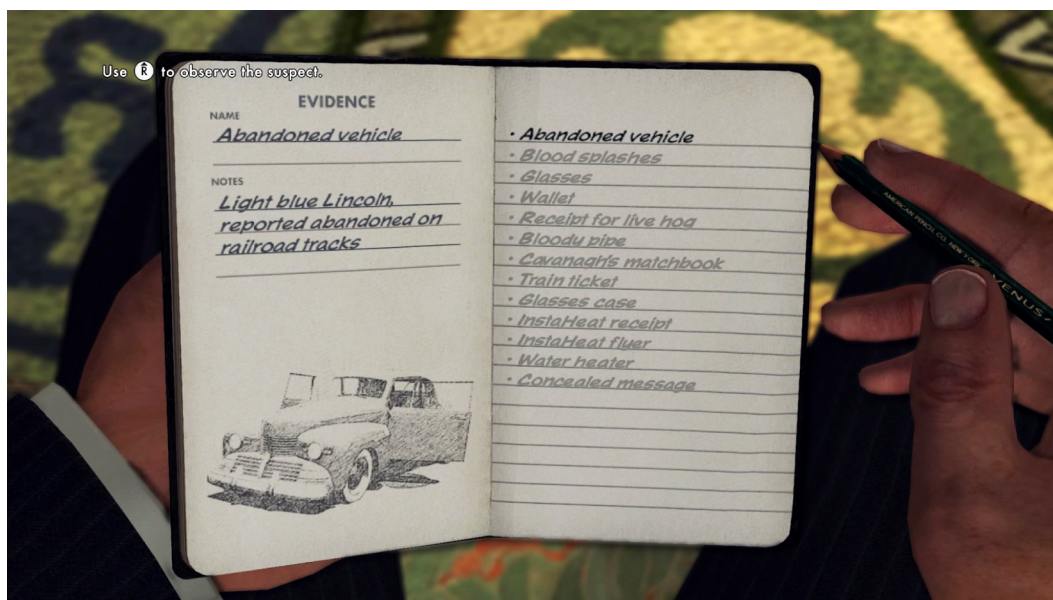 Use R to observe the suspect.
EVIDENCE
NAME
Abandoned vehicle
NOTES
Light blue Lincoln,
reported abandoned on
railroad tracks
• Abandoned vehicle
• Blood splashes
• Glasses
• Wallet
• Receipt for live hog
• Bloody pipe
• Cavanagh's matchbook
• Train ticket
• Glasses case
• InstaHeat receipt
• InstaHeat flyer
• Water heater
• Concealed message
AMERICAN PENCIL CO. NEW YORK
VENUS